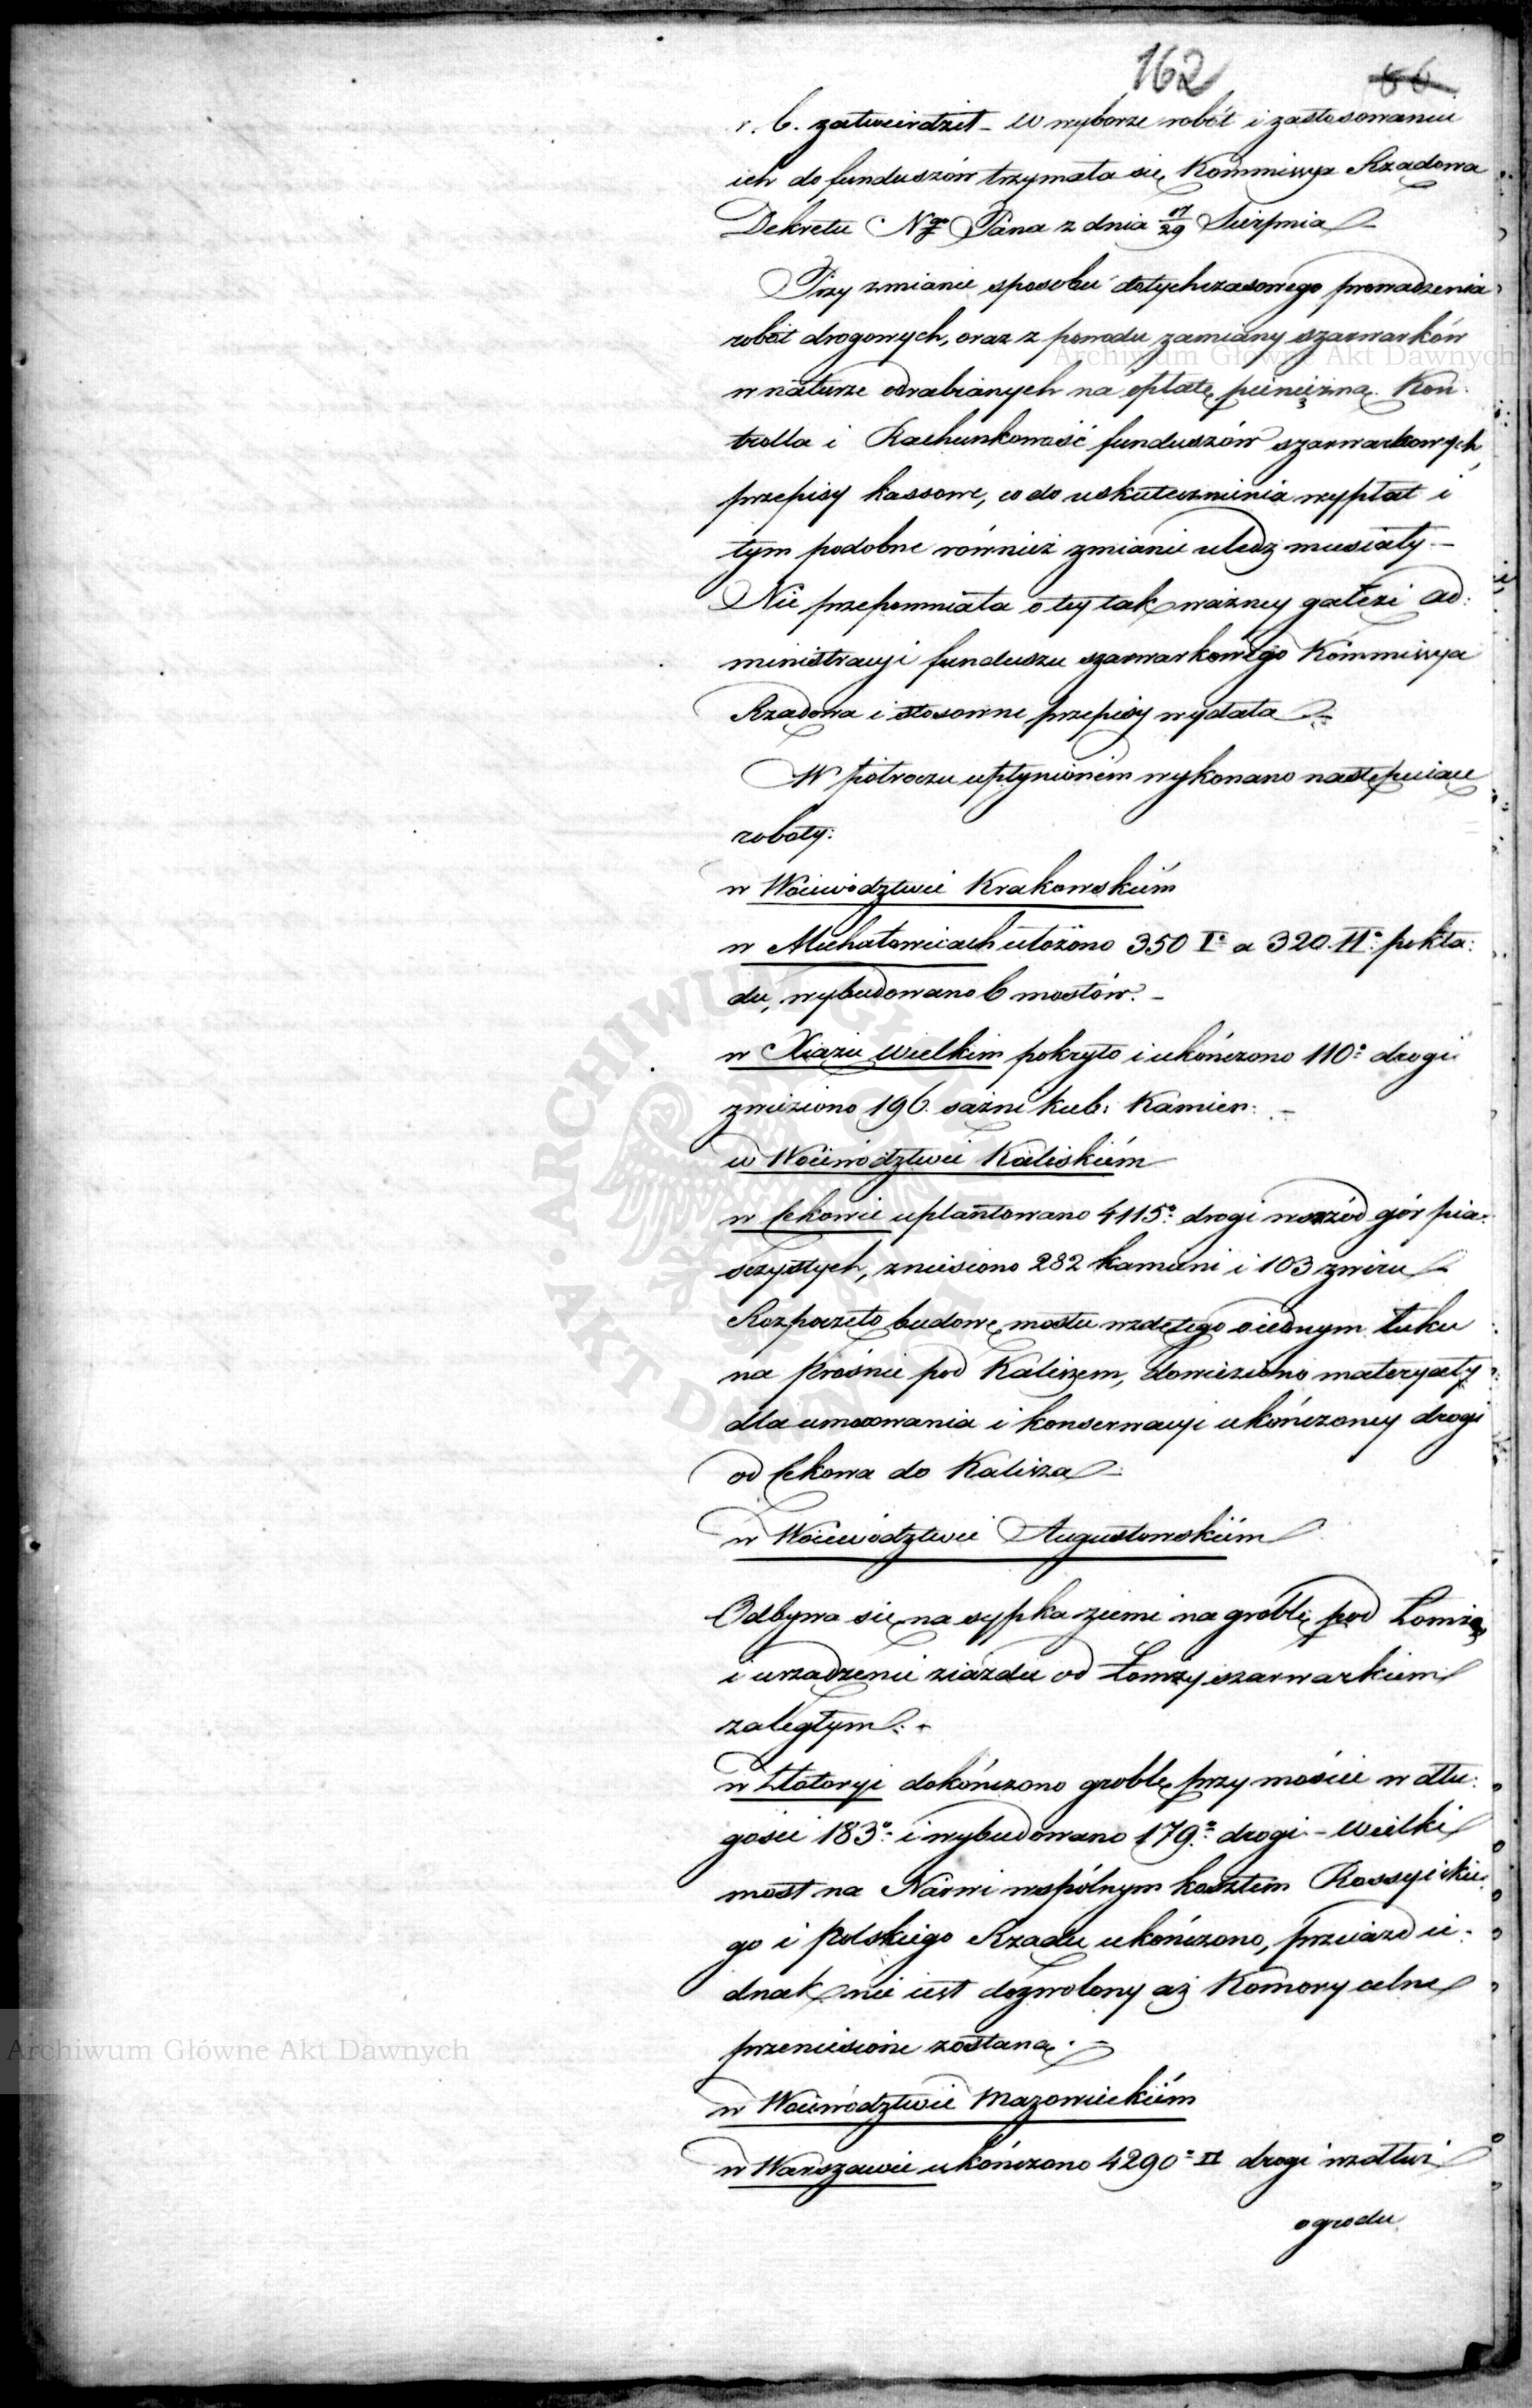 162 66
r. b. zatwierdził – W wyborze robót i zastosowaniu
ich do funduszów trzymała się Kommissya Rządowa
Dekretu Ngo Pana z dnia 17/29 Sierpnia
Przy zmianie sposobu dotychczasowego prowadzenia
robót drogowych, oraz z powodu zamiany szarwarków
w naturze odrabianych na opłatę pieniężną. Kon:
trolla i Rachunkowość funduszów szarwarkowych,
przepisy kassowe, co do uskutecznienia wypłat i
tym podobne również zmianie uledz musiały –
Nie przepomniała o tey tak ważney gałęzi ad:
ministracyi funduszu szarwarkowego Kommissya
Rządowa i stosowne przepisy wydała –
W półroczu upłynionem wykonano następuiące
roboty:
w Woiewództwie Krakowskiém
w Michałowicach ułożono 350 I° a 320 II° pokła:
du, wybudowano 6 mostów. –
w Xiążu wielkim pokryto i ukończono 110° drogi
zwieziono 196 sążni kub: Kamien: –
w Woiewództwie Kaliskiém
w Cekowie uplantowano 4115° drogi wśród gór pia:
sczystych, zniesiono 282 kamieni i 103 żwiru –
Rozpoczęto budowę mostu wzdętego o iednym łuku
na Prośnie pod Kaliszem, dowieziono materyały
dla umocowania i konserwacyi ukończoney drogi
od Cekowa do Kalisza –
w Woiewództwie Augustowskiém
Odbywa się nasypka ziemi na groblę pod Łomżą
i urządzenie ziazdu od Łomży szarwarkiem
zaległym. –
w Złotoryi dokończono groblę przy moście w dłu:
gości 183° i wybudowano 179° drogi – wielki
most na Narwi wspólnym kosztem Rossyiskie:
go i Polskiego Rządu ukończono, przeiazd ie:
dnak nie iest dozwolony aż Komory celne
przeniesione zostaną. –
w Woiewództwie Mazowieckiém
w Warszawie ukończono 4290° II drogi wzdłuż
ogrodu
Archiwum Główne Akt Dawnych
Archiwum Główne Akt Dawnych
ARCHIWUM GŁÓWNE AKT DAWNYCH